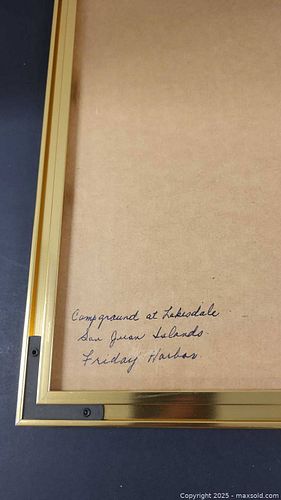 Campground at Lakesdale
San Juan Islands
Friday Harbor
Copyright 2025 - maxsold.com